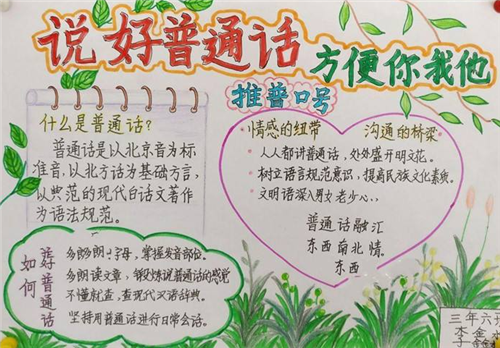 说好普通话
方便你我他
什么是普通话?
普通话是以北京音为标
准音,以北方话为基础方言,
以典范的现代白话文著作
为语法规范。
推普口号
·情感的纽带 沟通的桥梁
·人人都讲普通话,处处盛开明文花。
·树立语言规范意识,提高民族文化素质。
·文明语深入男女老少心,
普通话融汇
东西南北情。
东西
如何
学好普通话
多朗朗上字母,掌握发音部位。
多朗读文章,锻炼说普通话的感觉
不懂就查,查现代汉语辞典。
坚持用普通话进行日常会话。
三年六班
李金